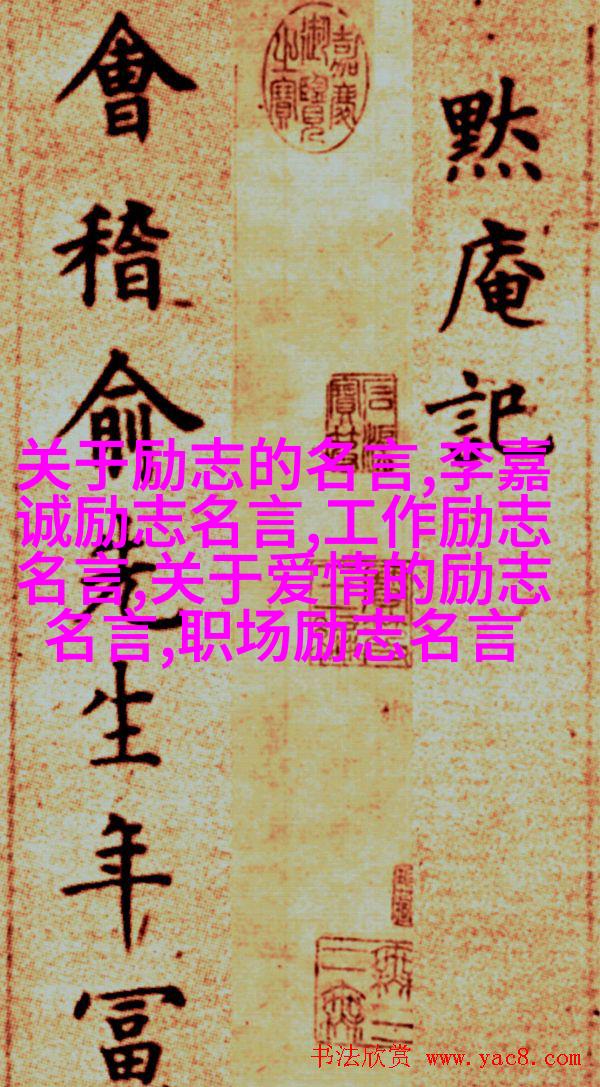 嘉慶
御覽
之寶
默庵記
會稽俞先生年冨
关于励志的名言,李嘉
诚励志名言,工作励志
名言,关于爱情的励志
名言,职场励志名言
书法欣赏 www.yac8.com